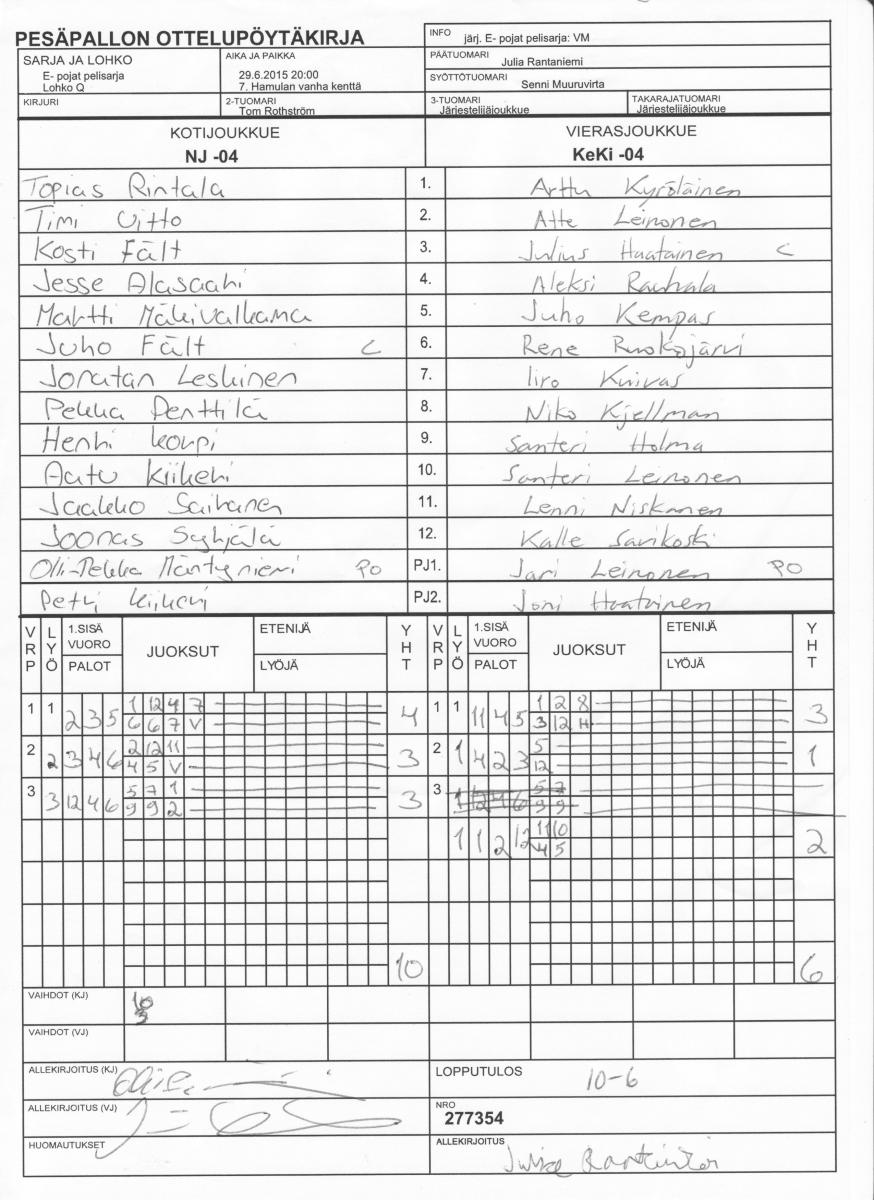 PESÄPALLON OTTELUPÖYTÄKIRJA
INFO järj. E- pojat pelisarja: VM
SARJA JA LOHKO
E- pojat pelisarja
Lohko Q
AIKA JA PAIKKA
29.6.2015 20:00
7. Hamulan vanha kenttä
PÄÄTUOMARI Julia Rantaniemi
SYÖTTÖTUOMARI Senni Muuruvirta
KIRJURI
2-TUOMARI
Tom Rothström
3-TUOMARI
Järjestelijäjoukkue
TAKARAJATUOMARI
Järjestelijäjoukkue
KOTIJOUKKUE
NJ -04
VIERASJOUKKUE
KeKi -04
Topias Rintala 1. Arttu Kyröläinen
Timi Uitto 2. Atte Leinonen
Kosti Fält 3. Julius Haatainen C
Jesse Alasaari 4. Aleksi Rauhala
Martti Mäkivalkama 5. Juho Kempas
Juho Fält C 6. Rene Ruokojärvi
Jonatan Leskinen 7. Iiro Kuivas
Pekka Penttilä 8. Niko Kjellman
Henri Korpi 9. Santeri Holma
Aatu Kiikeri 10. Santeri Leinonen
Jaakko Saihanen 11. Lenni Niskanen
Joonas Syhjälä 12. Kalle Savikoski
Olli-Pekka Mäntyniemi PO PJ1. Jari Leinonen PO
Petri Kiikeri PJ2. Joni Haatainen
VRP LYÖ 1.SISÄ VUORO PALOT JUOKSUT ETENIJÄ LYÖJÄ YHT VRP LYÖ 1.SISÄ VUORO PALOT JUOKSUT ETENIJÄ LYÖJÄ YHT
1 1 2 3 5 1 12 4 7 4 1 1 11 4 5 1 2 8 3
6 6 7 V 3 12 4
2 2 3 4 6 2 12 11 3 2 1 4 2 3 5 1
4 5 V 12
3 3 12 4 6 5 7 1 3 3 1 12 4 6 5 7
9 9 2 9 9
1 1 2 12 11 10 2
4 5
10 6
VAIHDOT (KJ) 10
3
VAIHDOT (VJ)
ALLEKIRJOITUS (KJ)
LOPPUTULOS 10-6
ALLEKIRJOITUS (VJ)
NRO
277354
HUOMAUTUKSET
ALLEKIRJOITUS